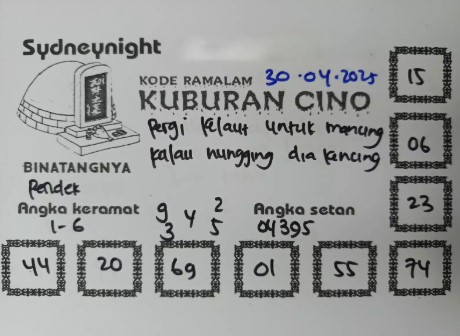 Sydneynight
KODE RAMALAM 30-04-2025
KUBURAN CINO
Pergi kelaut untuk mancing
kalau nungging dia kencing
BINATANGNYA
Pendek
Angka keramat
1-6
9 4 2
3 5
Angka setan
04395
15
06
23
44 20 69 01 55 74